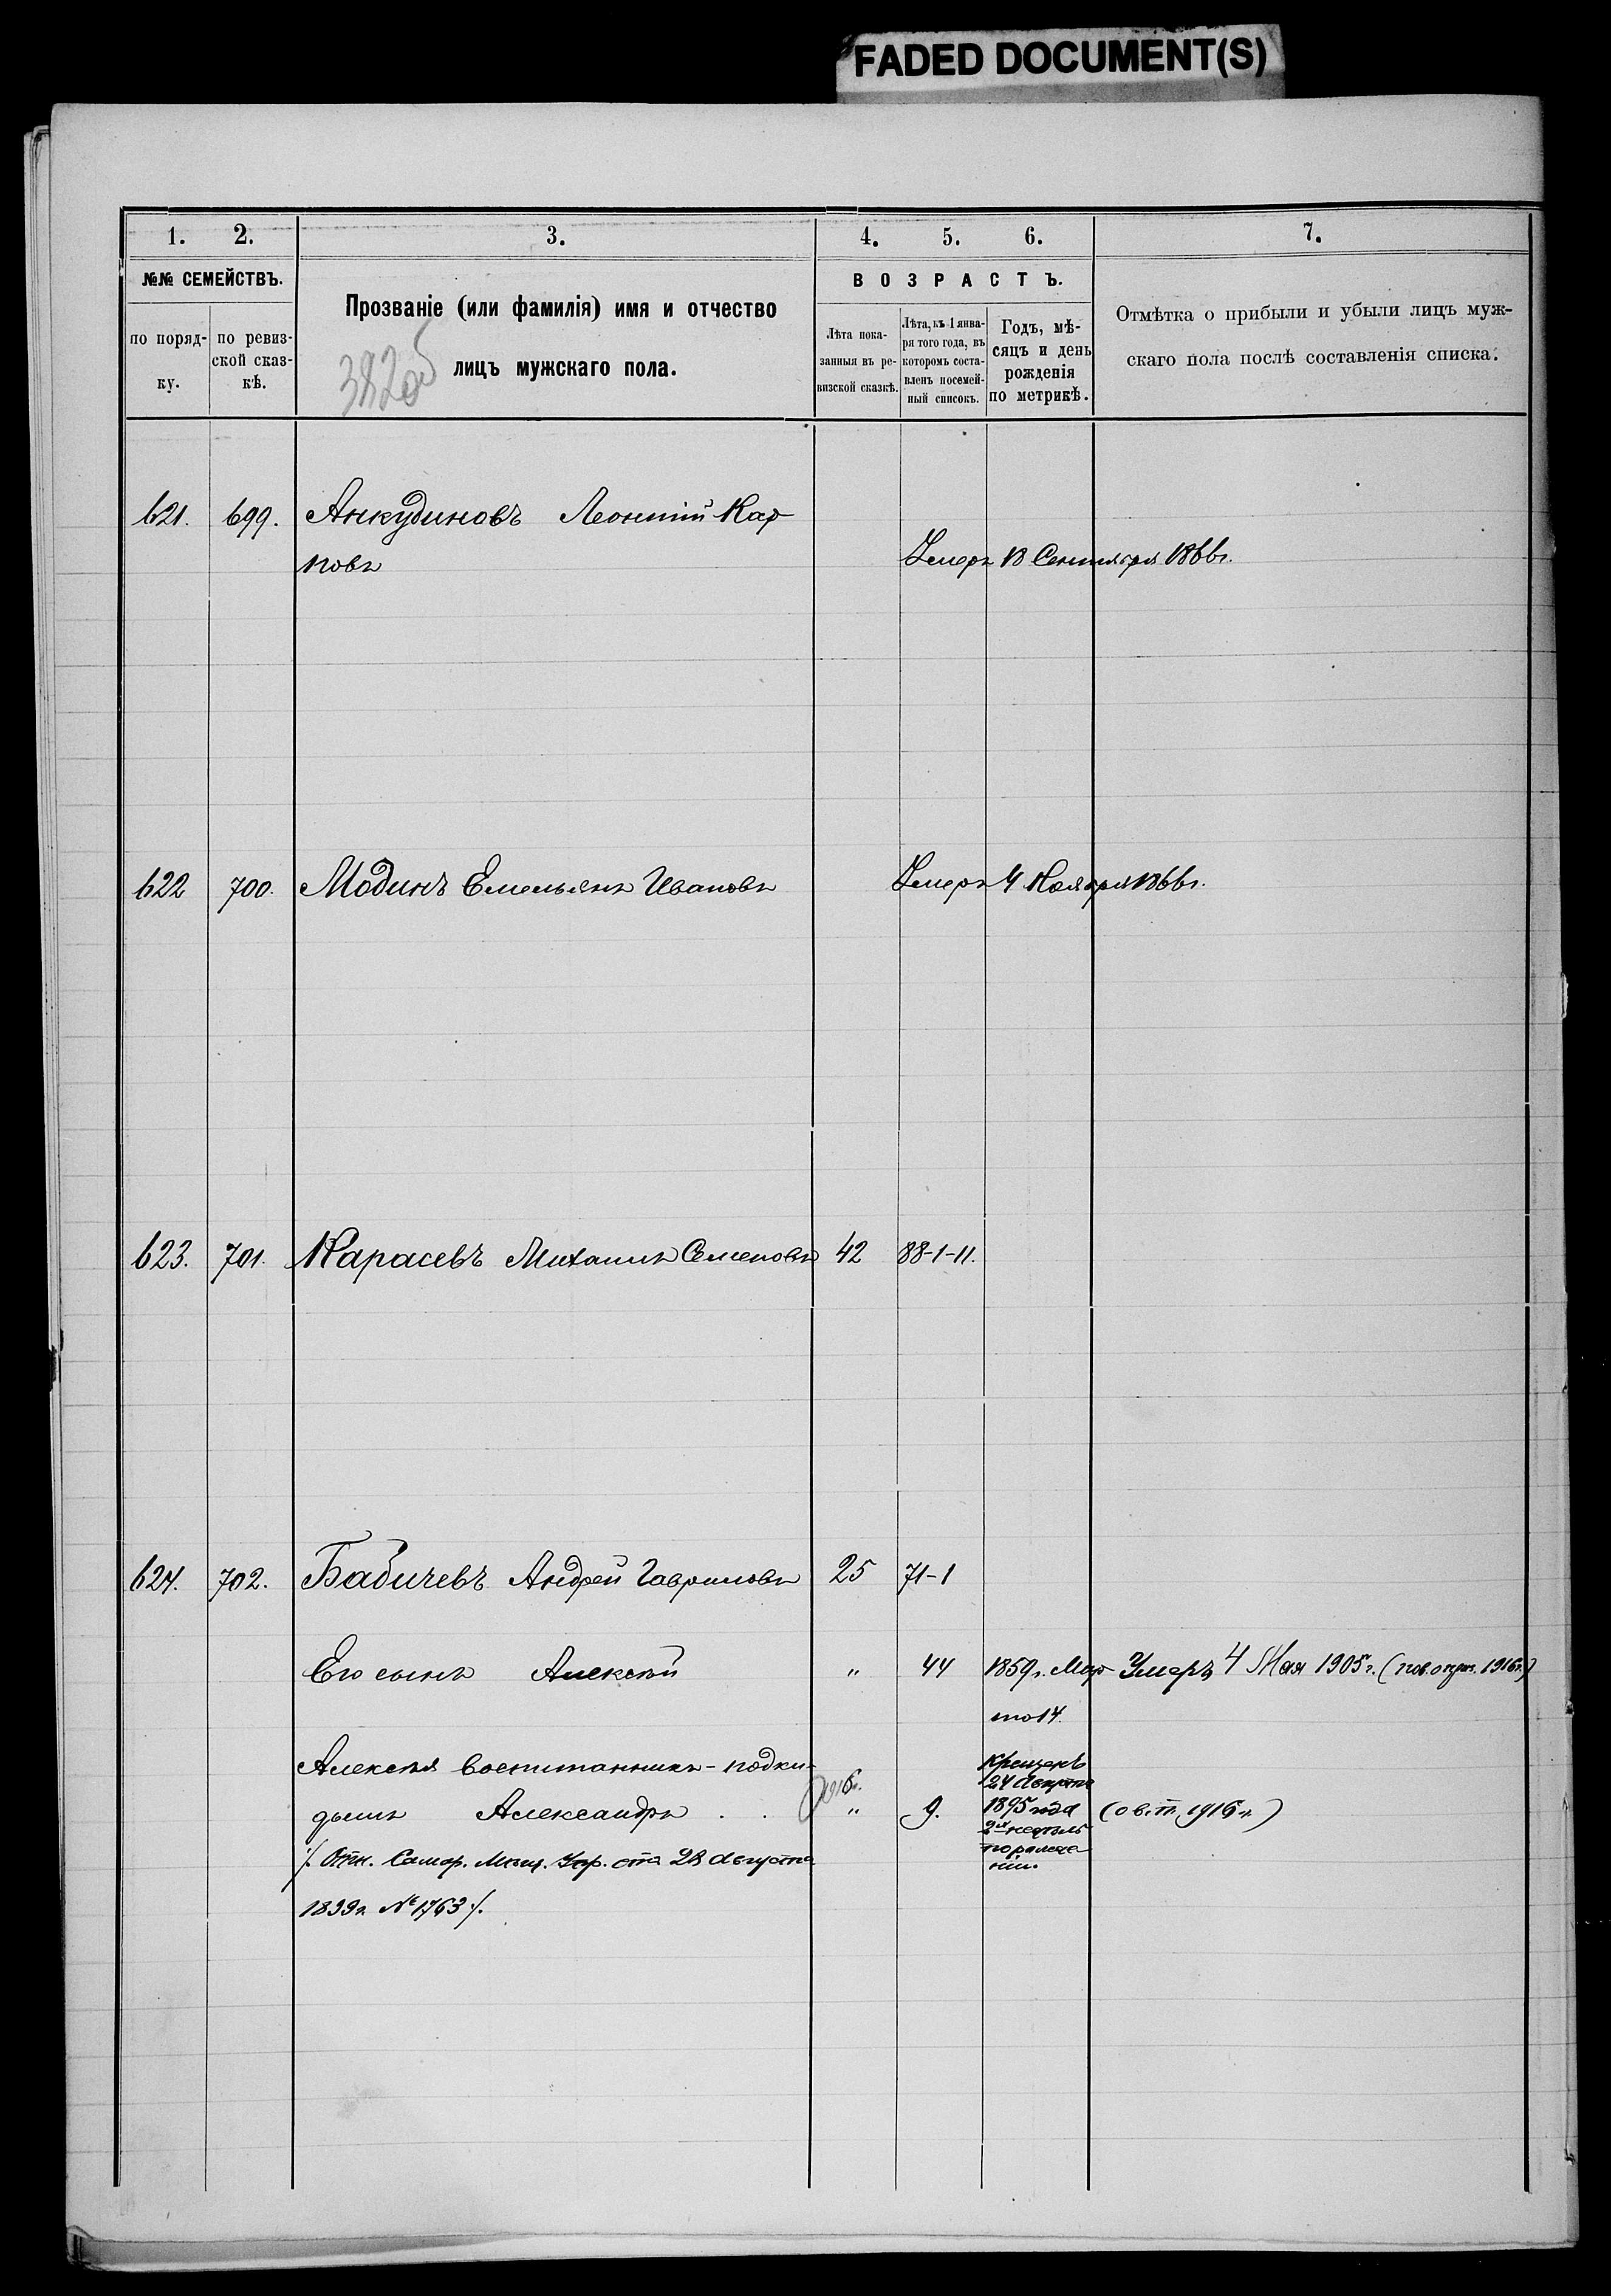 FADED DOCUMENT(S)
1. 2. 3. 4. 5. 6. 7.
№№ СЕМЕЙСТВЪ.
по поряд-
ку.
по ревиз-
ской сказ-
кѣ.
Прозваніе (или фамилія) имя и отчество
лицъ мужскаго пола.
382об
ВОЗРАСТЪ.
Лѣта пока-
занныя въ ре-
визской сказкѣ.
Лѣта, къ 1 янва-
ря того года, въ
которомъ соста-
вленъ посемей-
ный списокъ.
Годъ, мѣ-
сяцъ и день
рожденія
по метрикѣ.
Отмѣтка о прибыли и убыли лицъ муж-
скаго пола послѣ составленія списка.
621. 699. Анкудиновъ Леонтій Кар
повъ Умеръ 18 Сентября 1866г.
622 700. Модинъ Емельянъ Ивановъ Умеръ 4 Ноября 1866г.
623. 701. Карасевъ Михаилъ Семеновъ 42 88-1-11.
624. 702. Бабичевъ Андрей Гавриловъ 25 71-1
Его сынъ Алексѣй " 44 1859г. Мар Умеръ 4 Мая 1905г. (пов. 1916г.)
та 14.
Алексѣя воспитанникъ-подки-
дышъ Александръ . . " 9.
Крещенъ
24 Августа
1895 года
2хъ недѣль
по рожде
ніи.
(о в. п. 1916 г.)
/. Отн. Самар. Мѣщ. Упр. отъ 28 Августа
1899г. № 1763 /.